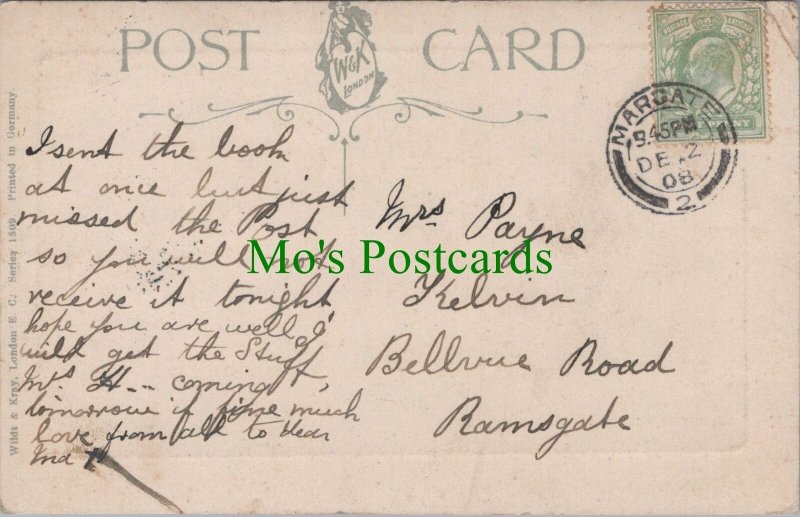 POST CARD
W&K
LONDON
MARGATE
9.45PM
DE 2
08
2
I sent the book
at once but just
missed the Post
so you will not
receive it tonight
hope you are well
will get the Stuff
Mrs H-- coming
tomorrow if fine much
love from all to dear
Ma
Mrs Payne
Kelvin
Bellvue Road
Ramsgate
Mo's Postcards
Wildt & Kray, London E. C. Series 1509 Printed in Germany